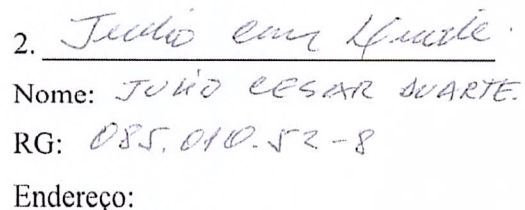 2. Julio Cesar Duarte.
Nome: JULIO CESAR DUARTE.
RG: 085.010.52-8
Endereço: